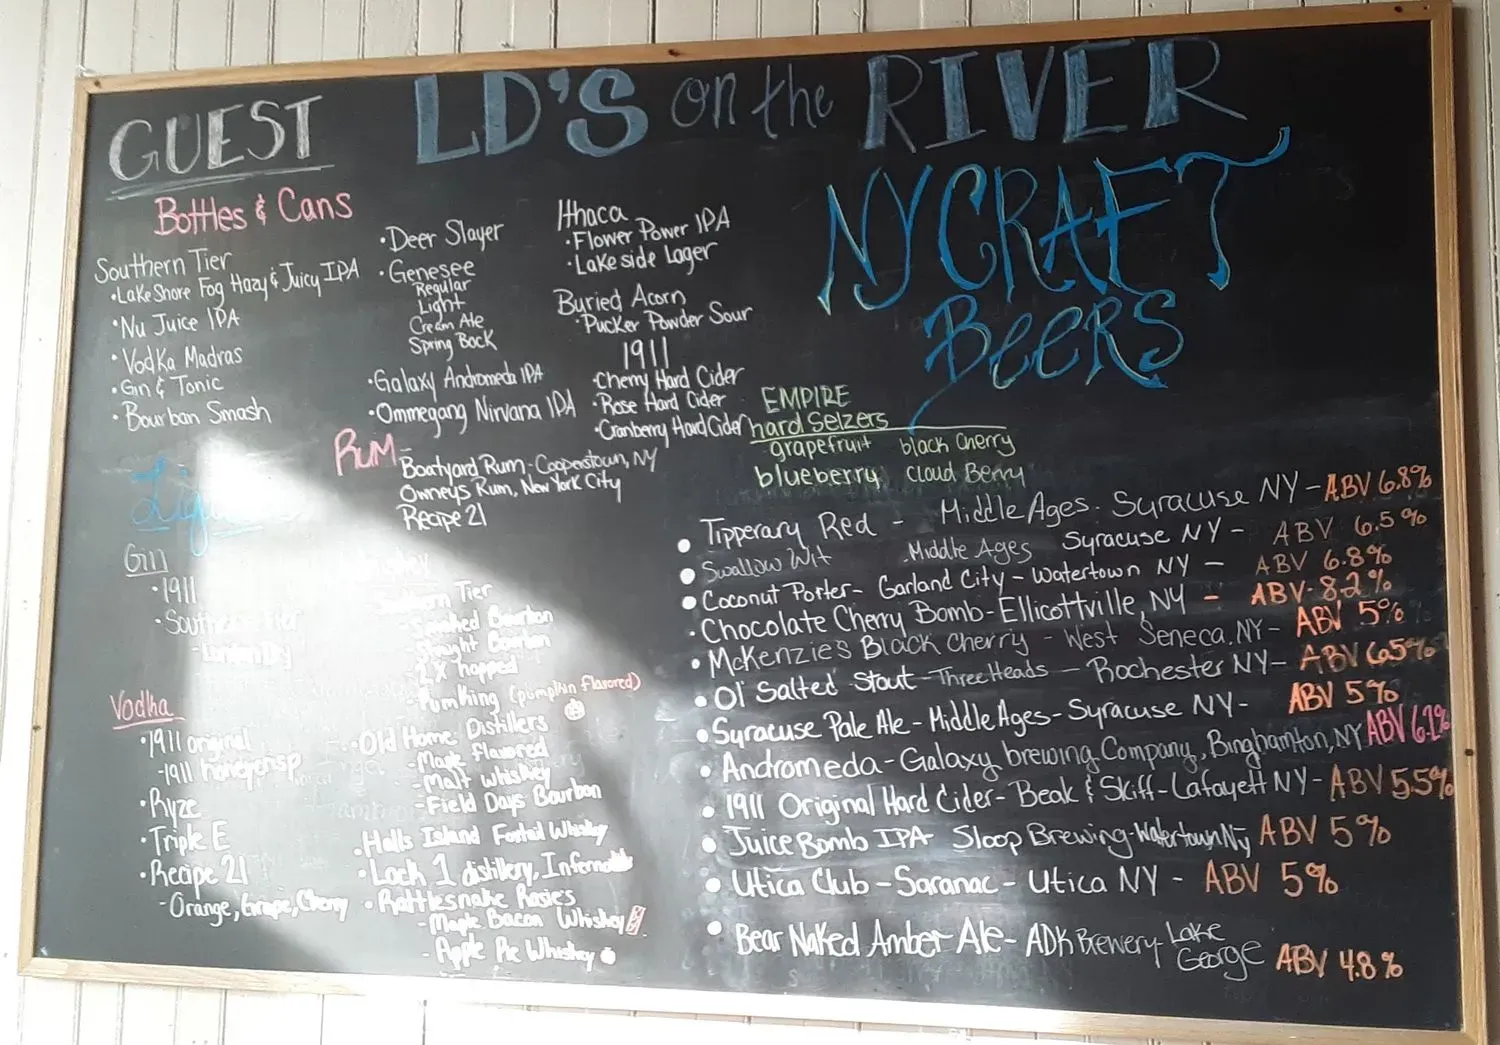 GUEST LD'S on the RIVER
Bottles & Cans
Southern Tier
• Lake Shore Fog Hazy & Juicy IPA
• Nu Juice IPA
• Vodka Madras
• Gin & Tonic
• Bourban Smash
• Deer Slayer
• Genesee
Regular
Light
Cream Ale
Spring Bock
• Galaxy Andromeda IPA
• Ommegang Nirvana IPA
Ithaca
• Flower Power IPA
• Lakeside Lager
Buried Acorn
• Pucker Powder Sour
1911
• Cherry Hard Cider
• Rose Hard Cider
• Cranberry Hard Cider
EMPIRE
hard Selzers
grapefruit black cherry
blueberry cloud Berry
RUM -
Boatyard Rum - Cooperstown, NY
Owneys Rum, New York City
Recipe 21
Gin
• 1911
• Southern Tier
Vodka
• 1911 original
- 1911 honeycrisp
• Ryze
• Triple E
• Recipe 21
- Orange, Grape, Cherry
Tier
- Smoked Bourbon
- Straight Bourbon
- 2X hopped
- Pumking (pumpkin flavored)
• Old Home Distillers
- Maple Flavored
- Malt Whiskey
- Field Days Bourbon
• Halls Island Foxtail Whiskey
• Lock 1 distillery,
• Rattlesnake Rosies
- Maple Bacon Whiskey
- Apple Pie Whiskey
NY CRAFT
BEERS
• Tipperary Red - Middle Ages. Syracuse NY - ABV 6.8%
• Swallow Wit Middle Ages Syracuse NY - ABV 6.5%
• Coconut Porter - Garland City - Watertown NY - ABV 6.8%
• Chocolate Cherry Bomb - Ellicottville, NY - ABV - 8.2%
• McKenzie's Black Cherry - West Seneca, NY - ABV 5%
• Ol' Salted Stout - Three Heads - Rochester NY - ABV 6.5%
• Syracuse Pale Ale - Middle Ages - Syracuse NY - ABV 5%
• Andromeda - Galaxy brewing Company, Binghamton, NY ABV 6.2%
• 1911 Original Hard Cider - Beak & Skiff - Lafayett NY - ABV 5.5%
• Juice Bomb IPA Sloop Brewing - Watertown Ny ABV 5%
• Utica Club - Saranac - Utica NY - ABV 5%
• Bear Naked Amber Ale - ADK Brewery Lake George ABV 4.8%